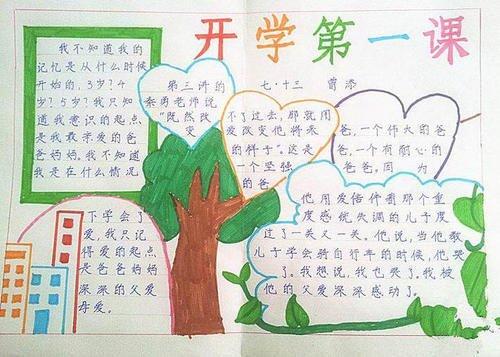 开学第一课
七·十三 曾添
我不知道我的
记忆是从什么时候
开始的，3岁？4
岁？5岁？我只知
道我意识的起点
是我最亲爱的爸
爸妈妈。我不知道
我是在什么情况
下学会了
爱，我只记
得爱的起点
是爸爸妈妈
深深的父爱
母爱。
第三讲的
秦勇老师说
“既然改
变
不了过去，那就用
爱改变他将来
的样子”。这是
一个坚强
的爸
爸，一个伟大的爸
爸，一个有耐心的
爸爸，因为
他用爱陪伴着那个重
度感统失调的儿子度
过了一关又一关。他说，当他教
儿子学会骑自行车的时候，他哭
了。我想说，我也哭了。我被
他的父爱深深感动了。